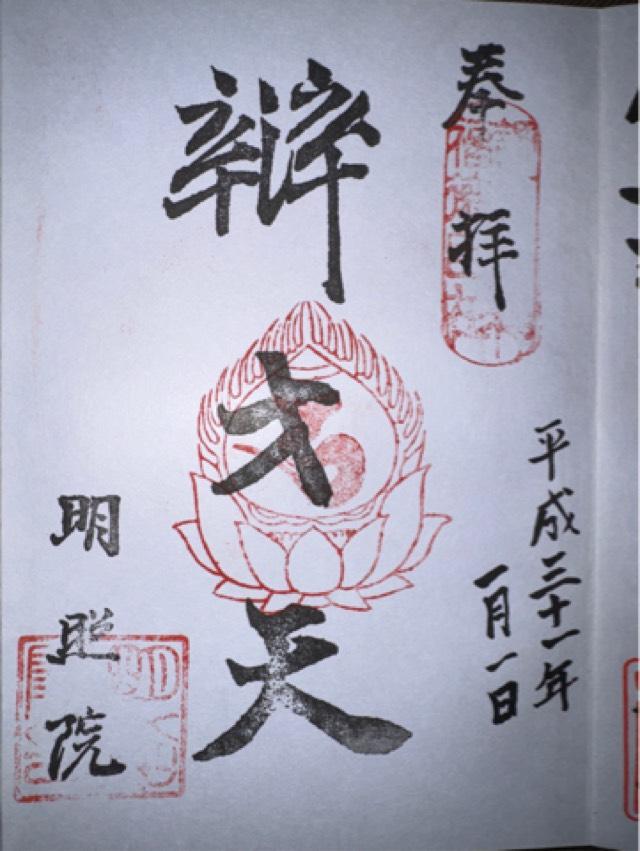 奉拝
平成三十一年
一月一日
辯才天
明照院